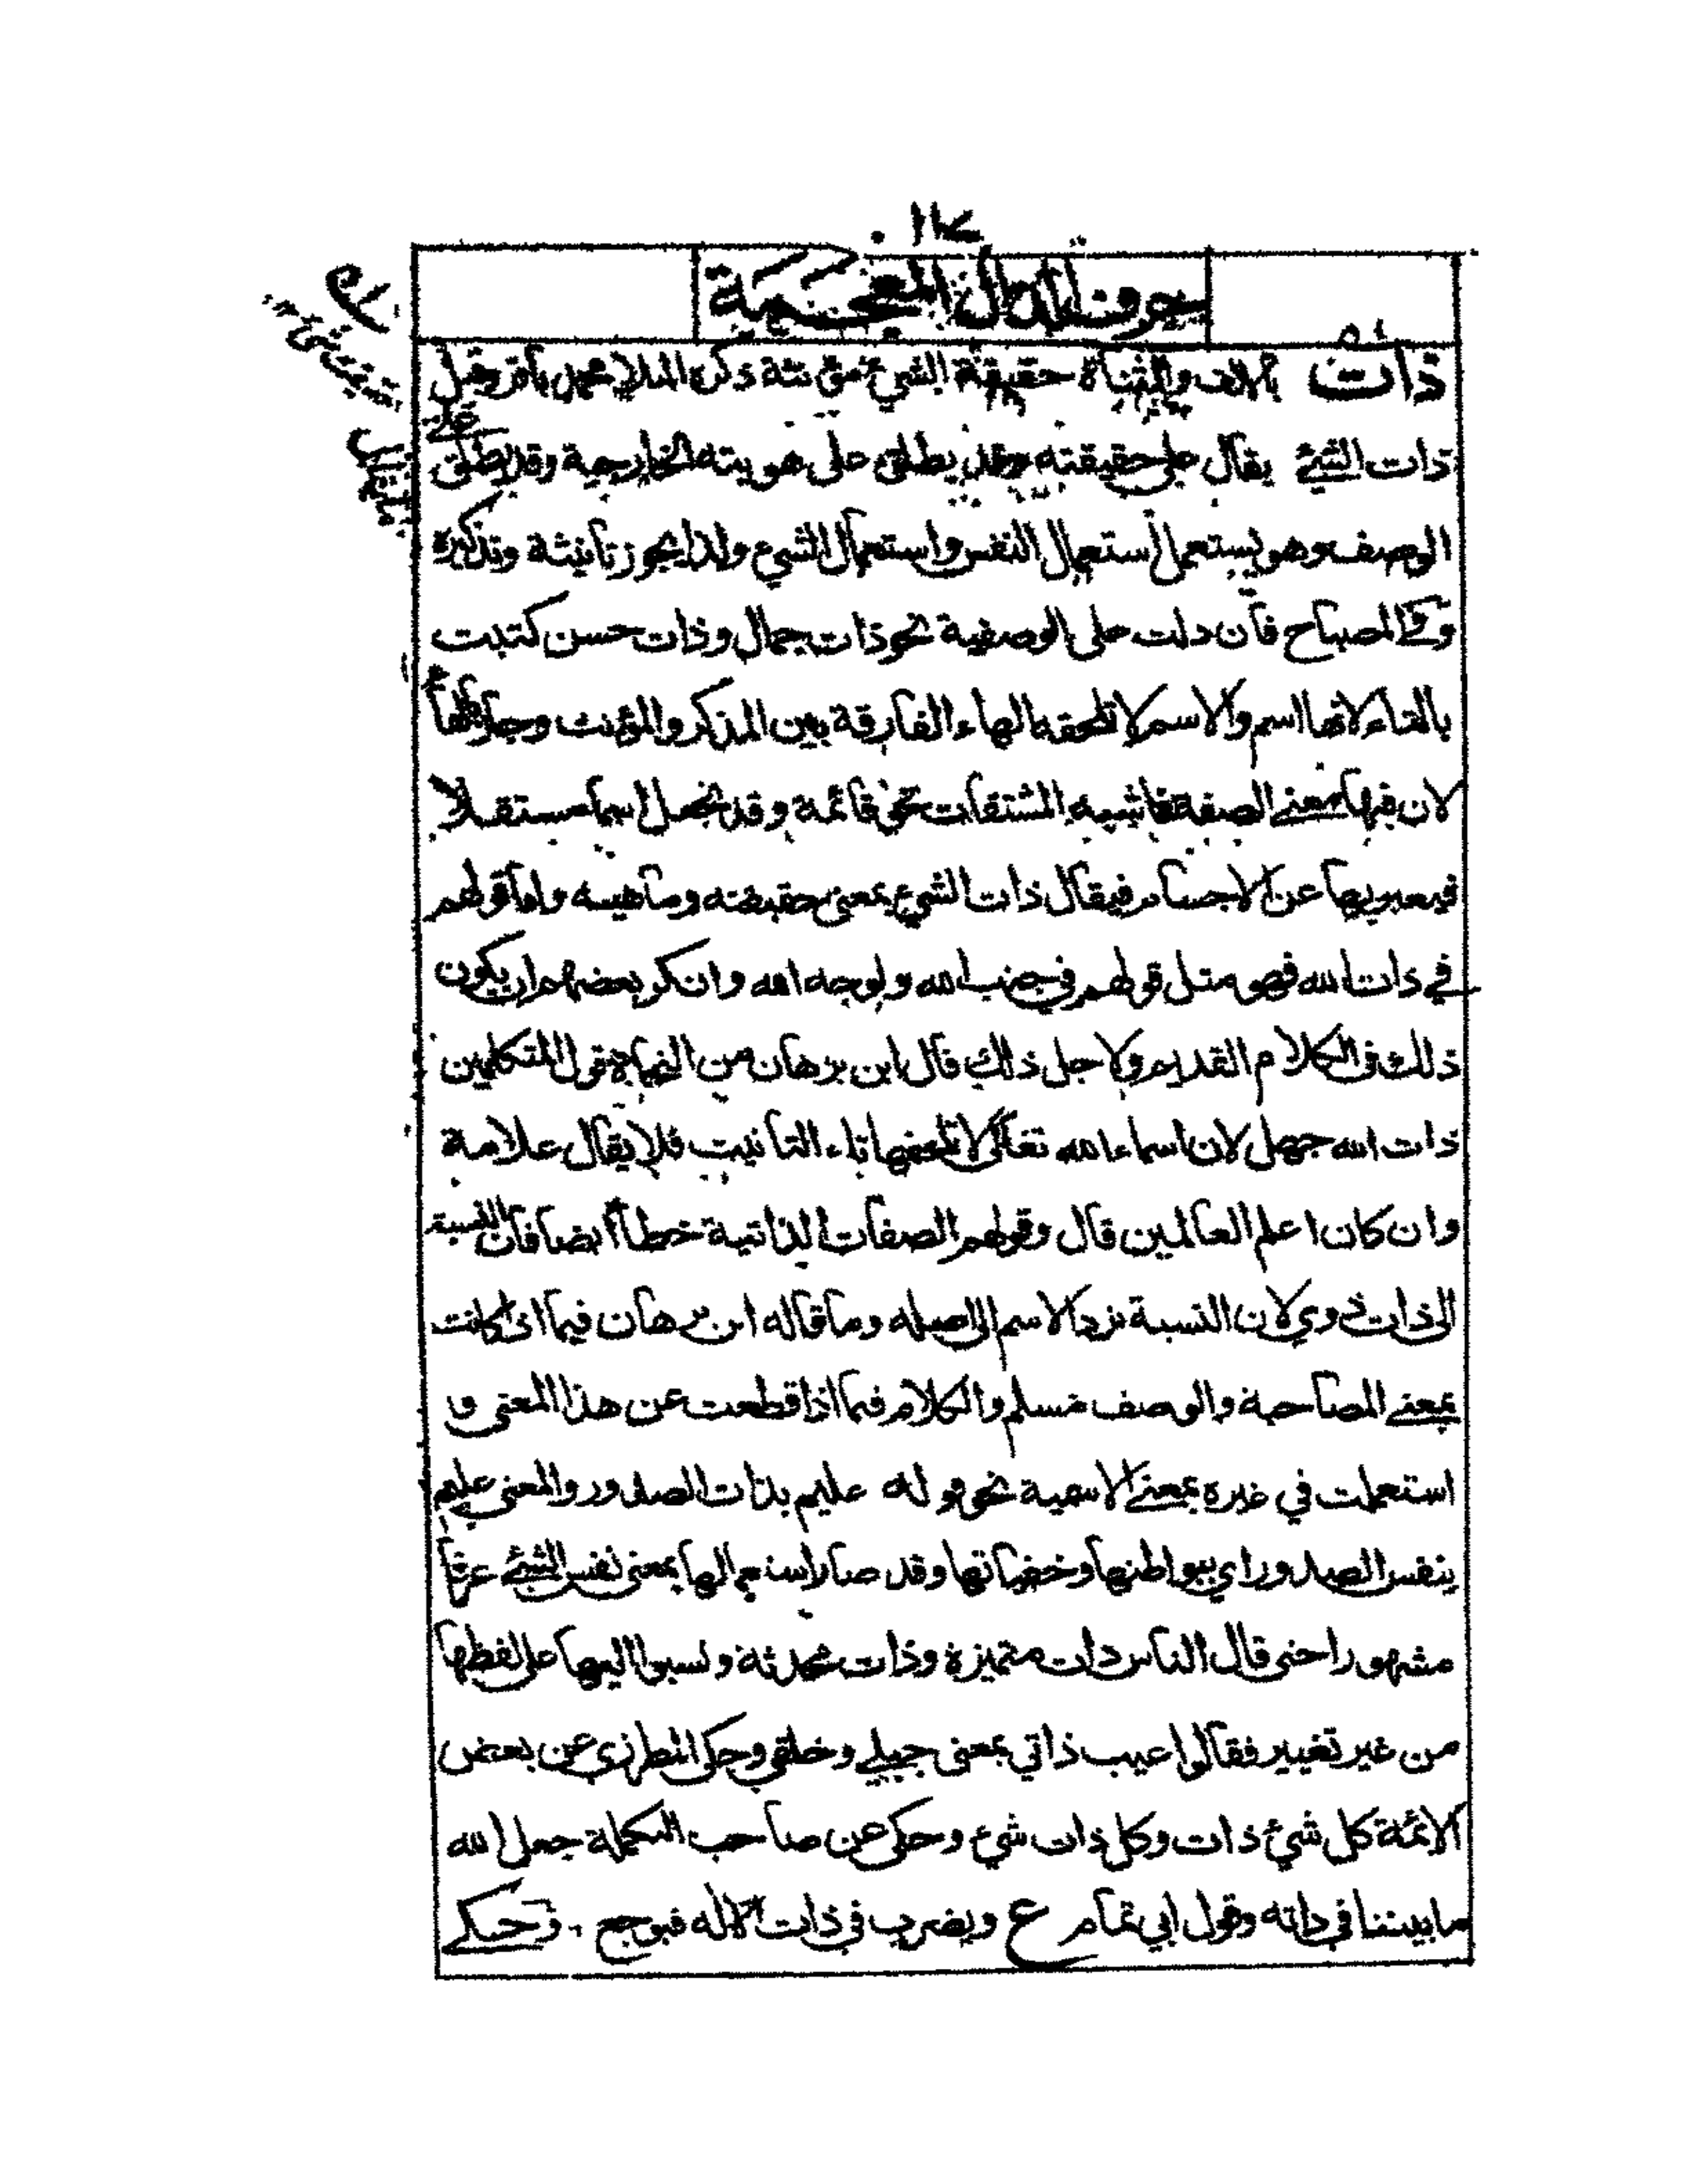 حرف الذال المعجمة
ذات بالالف والمثناة حقيقة الشيء مؤنثة ذكره الملا محمد باقر وقيل
ذات الشئ يقال على حقيقته وقد يطلق على هويته الخارجية وقد يطلق على
الوصف وهو يستعمل استعمال النفس واستعمال الشيء ولذا يجوز تانيثه وتذكيره
وفي المصباح فان دلت على الوصفية نحو ذات جمال وذات حسن كتبت
بالتاء لانها اسم والاسم لا تلحقه الهاء الفارقة بين المذكر والمؤنث وجاء
لان فيها معنى الصفة فاشبه المشتقات نحو قائمة وقد تجعل اسما مستقلا
فيعبر بها عن الاجسام فيقال ذات الشيء بمعنى حقيقته وماهيته واما قولهم
في ذات الله فهو مثل قولهم في جنب الله ولوجه الله وانكر بعضهم ان يكون
ذلك في الكلام القديم ولاجل ذلك قال ابن برهان من النحاة قول المتكلمين
ذات الله جهل لان اسماء الله تعالى لا تلحقها تاء التانيث فلا يقال علامة
وان كان اعلم العالمين قال وقولهم الصفات الذاتية خطأ ايضا فان النسبة
الى ذات ذوي لان النسبة ترد الاسم الى اصله وما قاله ابن برهان فيما اذا كانت
بمعنى المصاحبة والوصف مسلم والكلام فيما اذا قطعت عن هذا المعنى و
استعملت في غيره بمعنى الاسمية نحو قوله عليم بذات الصدور والمعنى عليم
بنفس الصدور اي ببواطنها وخفياتها وقد صار استعمالها بمعنى نفس الشئ عرفا
مشهورا حتى قال الناس ذات متميزة وذات محدثة ونسبوا اليها على لفظها
من غير تغيير فقالوا عيب ذاتي بمعنى جبلي وخلقي وحكى المطرزي عن بعض
الائمة كل شيء ذات وكل ذات شيء وحكى عن صاحب التكملة جعل الله
ما بيننا في ذاته وقول ابي تمام ع ويضرب في ذات الاله فيوجع . وحكى